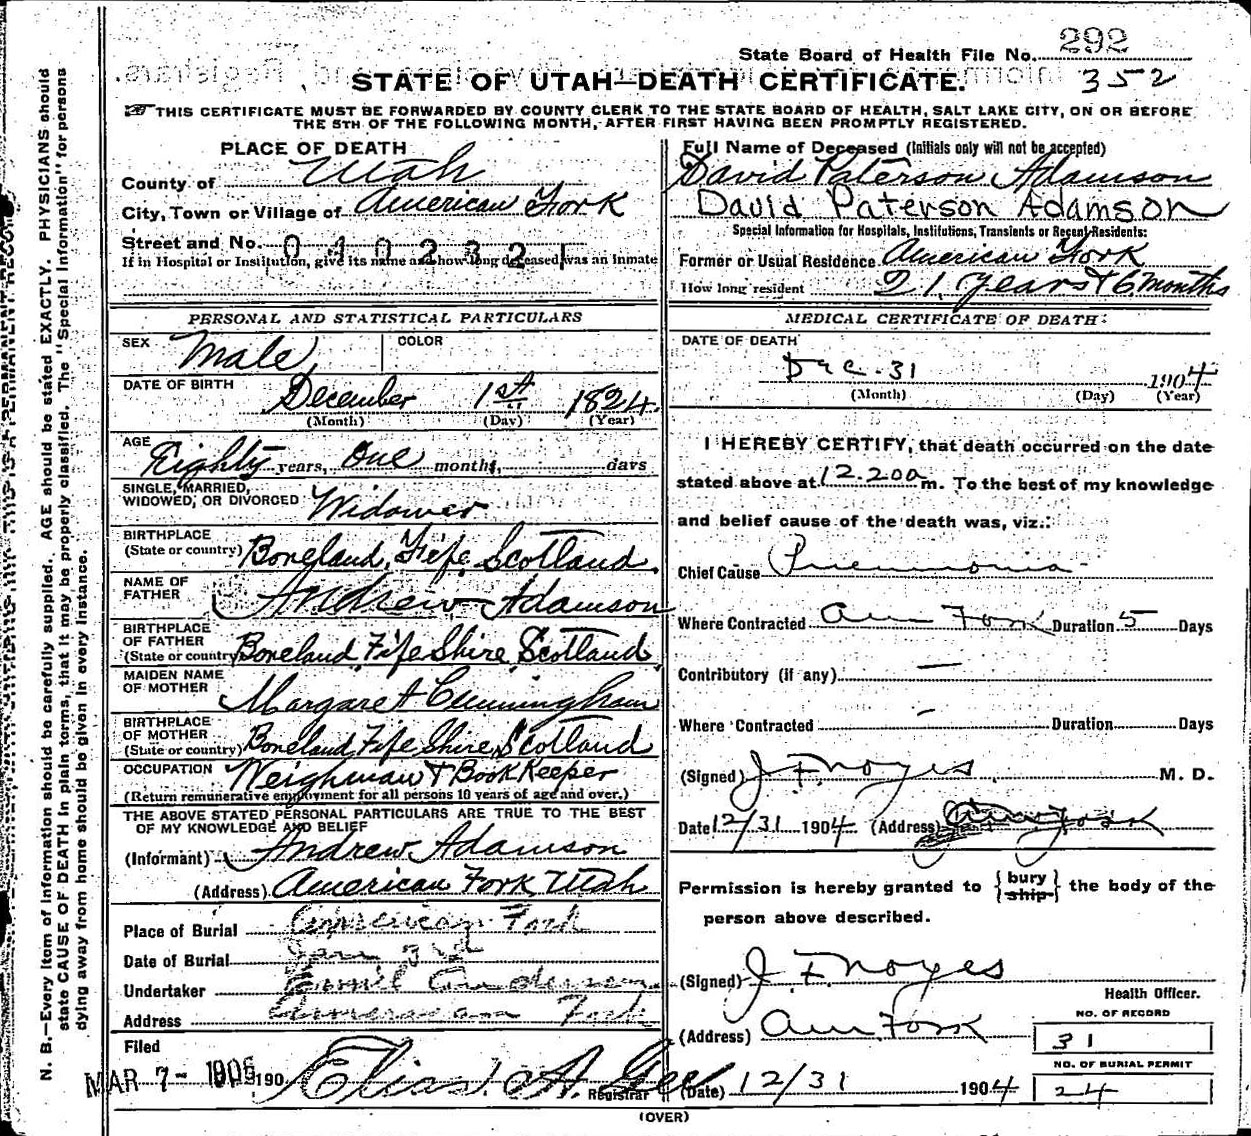 State Board of Health File No. 292
352
STATE OF UTAH—DEATH CERTIFICATE.
THIS CERTIFICATE MUST BE FORWARDED BY COUNTY CLERK TO THE STATE BOARD OF HEALTH, SALT LAKE CITY, ON OR BEFORE
THE 5TH OF THE FOLLOWING MONTH, AFTER FIRST HAVING BEEN PROMPTLY REGISTERED.
N. B.—Every item of information should be carefully supplied. AGE should be stated EXACTLY. PHYSICIANS should
state CAUSE OF DEATH in plain terms, that it may be properly classified. The "Special Information" for persons
dying away from home should be given in every instance.
PLACE OF DEATH
County of Utah
City, Town or Village of American Fork
Street and No. 0402321
If in Hospital or Institution, give its name and how long deceased was an inmate
PERSONAL AND STATISTICAL PARTICULARS
SEX Male COLOR
DATE OF BIRTH
December 1st 1824.
(Month) (Day) (Year)
AGE
Eighty years, One months, days
SINGLE, MARRIED,
WIDOWED, OR DIVORCED Widower
BIRTHPLACE
(State or country) Boneland, Fife, Scotland.
NAME OF
FATHER Andrew Adamson
BIRTHPLACE
OF FATHER
(State or country) Boneland Fife Shire Scotland
MAIDEN NAME
OF MOTHER Margaret Cunningham
BIRTHPLACE
OF MOTHER
(State or country) Boneland Fife Shire, Scotland
OCCUPATION Weighman & Book Keeper
(Return remunerative employment for all persons 10 years of age and over.)
THE ABOVE STATED PERSONAL PARTICULARS ARE TRUE TO THE BEST
OF MY KNOWLEDGE AND BELIEF
(Informant) Andrew Adamson
(Address) American Fork Utah
Place of Burial American Fork
Date of Burial Jan 3rd
Undertaker Emil Anderson
Address American Fork
Filed
MAR 7- 1905 190 Elias A. Gee
Registrar
Full Name of Deceased (Initials only will not be accepted)
David Paterson Adamson
David Paterson Adamson
Special Information for Hospitals, Institutions, Transients or Recent Residents:
Former or Usual Residence American Fork
How long resident 21 Years & 6 months
MEDICAL CERTIFICATE OF DEATH
DATE OF DEATH
Dec. 31 1904
(Month) (Day) (Year)
I HEREBY CERTIFY, that death occurred on the date
stated above at 12.20 a m. To the best of my knowledge
and belief cause of the death was, viz.:
Chief Cause Pneumonia
Where Contracted Am Fork Duration 5 Days
Contributory (if any) —
Where Contracted — Duration Days
(Signed) J F Noyes M. D.
Date 12/31 1904 (Address) Am Fork
Permission is hereby granted to { bury
ship } the body of the
person above described.
(Signed) J. F. Noyes
Health Officer.
(Address) Am Fork
NO. OF RECORD
31
NO. OF BURIAL PERMIT
24
(Date) 12/31 1904
(OVER)